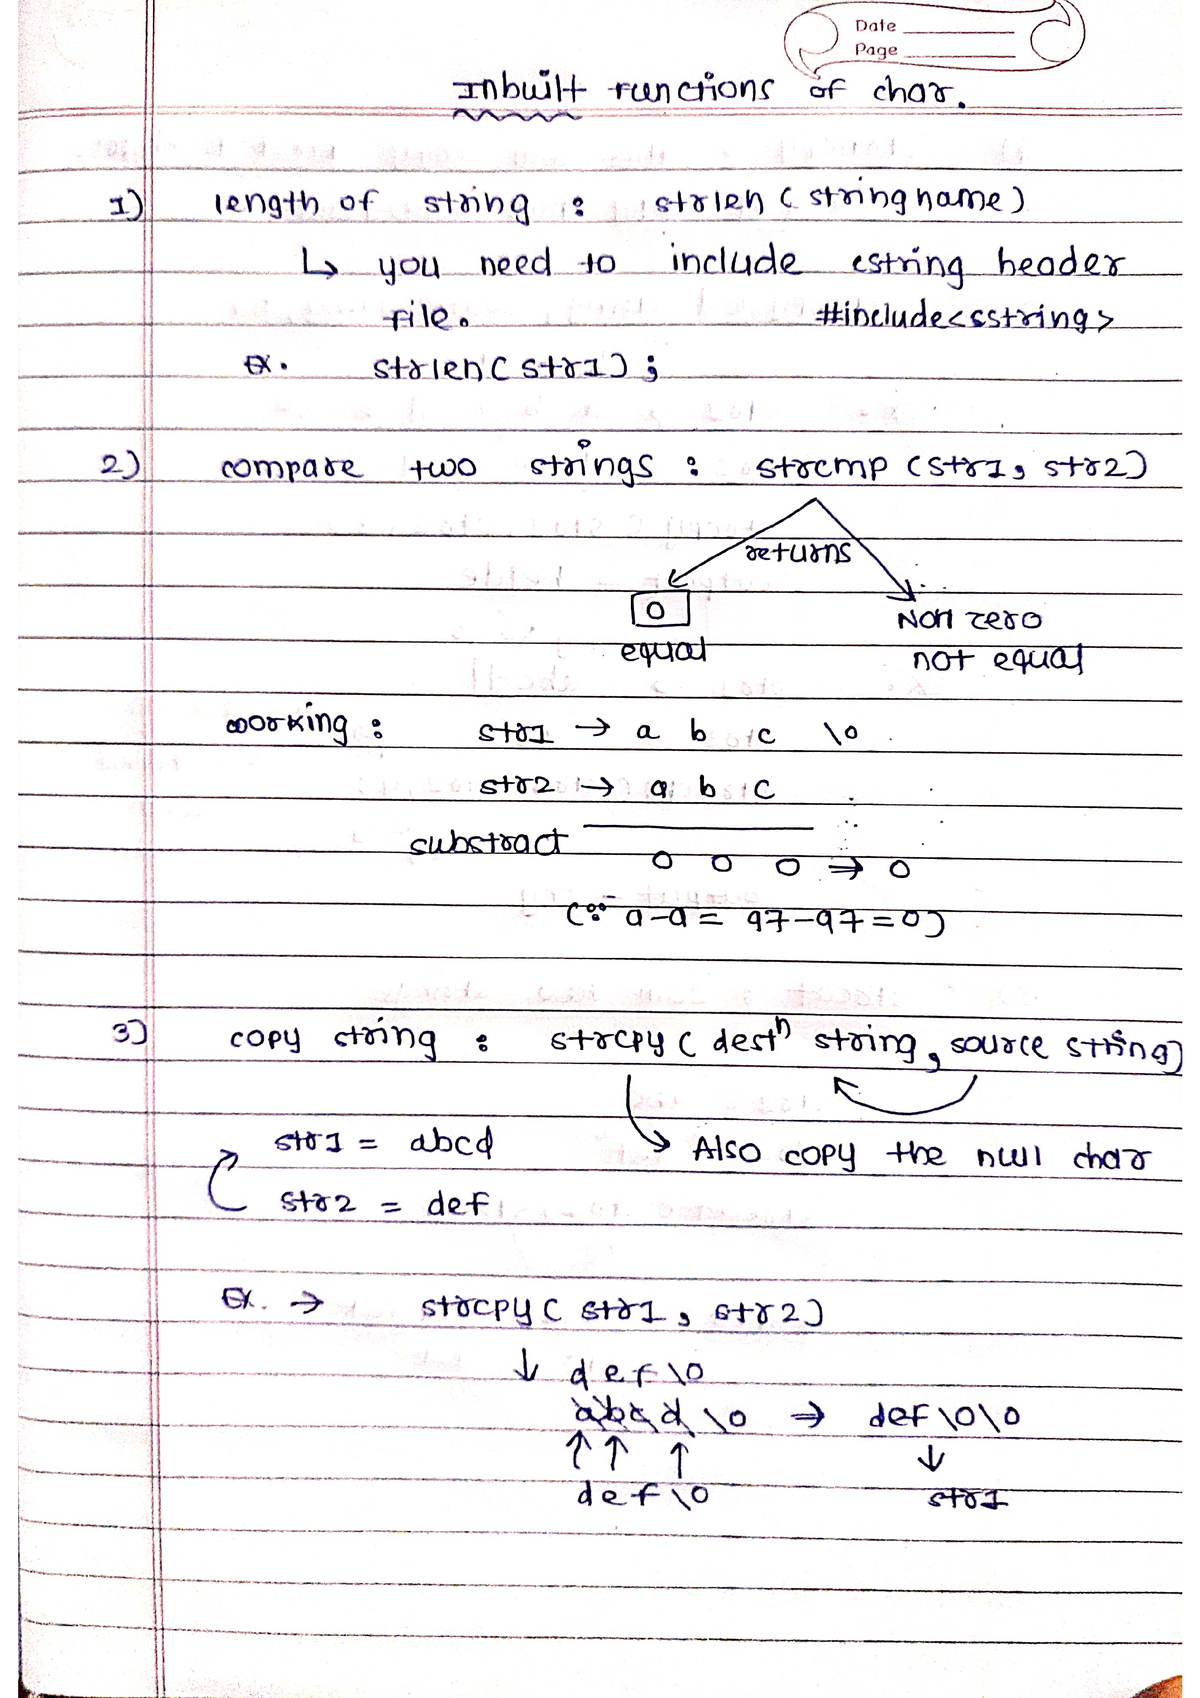 Date
Page
Inbuilt Functions of char.
1) length of string : strlen (string name)
↳ you need to include cstring header
file. #include<cstring>
Ex. strlen(str1);
2) compare two strings : strcmp (str1, str2)
returns
0 Non zero
equal not equal
working : str1 → a b c \0
str2 → a b c
substract
0 0 0 ⇒ 0
(∵ a-a = 97-97=0)
3) copy string : strcpy ( destn string, source string)
str1 = abcd Also copy the null char
str2 = def
Ex. → strcpy ( str1, str2)
↓ def\0
abcd\0 ⇒ def\0\0
↑ ↑ ↑ ↓
def\0 str1